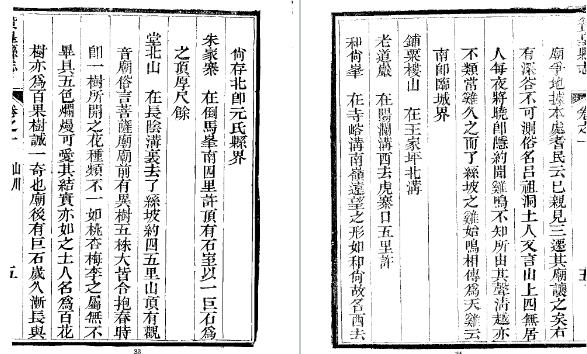 尚存北卽元氏縣界
朱家寨 在倒馬峯南四里許頂有石室以一巨石為
之頂厚尺餘
堂北山 在長陰溝裏去了絲坡約四五里山頂有觀
音廟俗言菩薩廟廟前有異樹五株大皆合抱春時
卽一樹所開之花種類不一如桃杏梅李之屬無不
畢具五色爛熳可愛其結實亦如之土人名為百花
樹亦為百果樹誠一奇也廟後有巨石歲久漸長與
卷之一 山川 五
33
廟爭地據本處耆民云已親見三遷其廟讓之矣右
有深谷不可測俗名呂祖洞土人又言山上四無居
人每夜將曉卽隱約聞雞鳴不知所由其聲清越亦
不類常雞久之而了絲坡之雞始鳴相傳為天雞云
南卽臨城界
鋪粟棱山 在王家坪北溝
老道巖 在陽關溝西去虎寨口五里許
和尚峯 在寺峪溝南嶺遠望之形如和尚故名西去